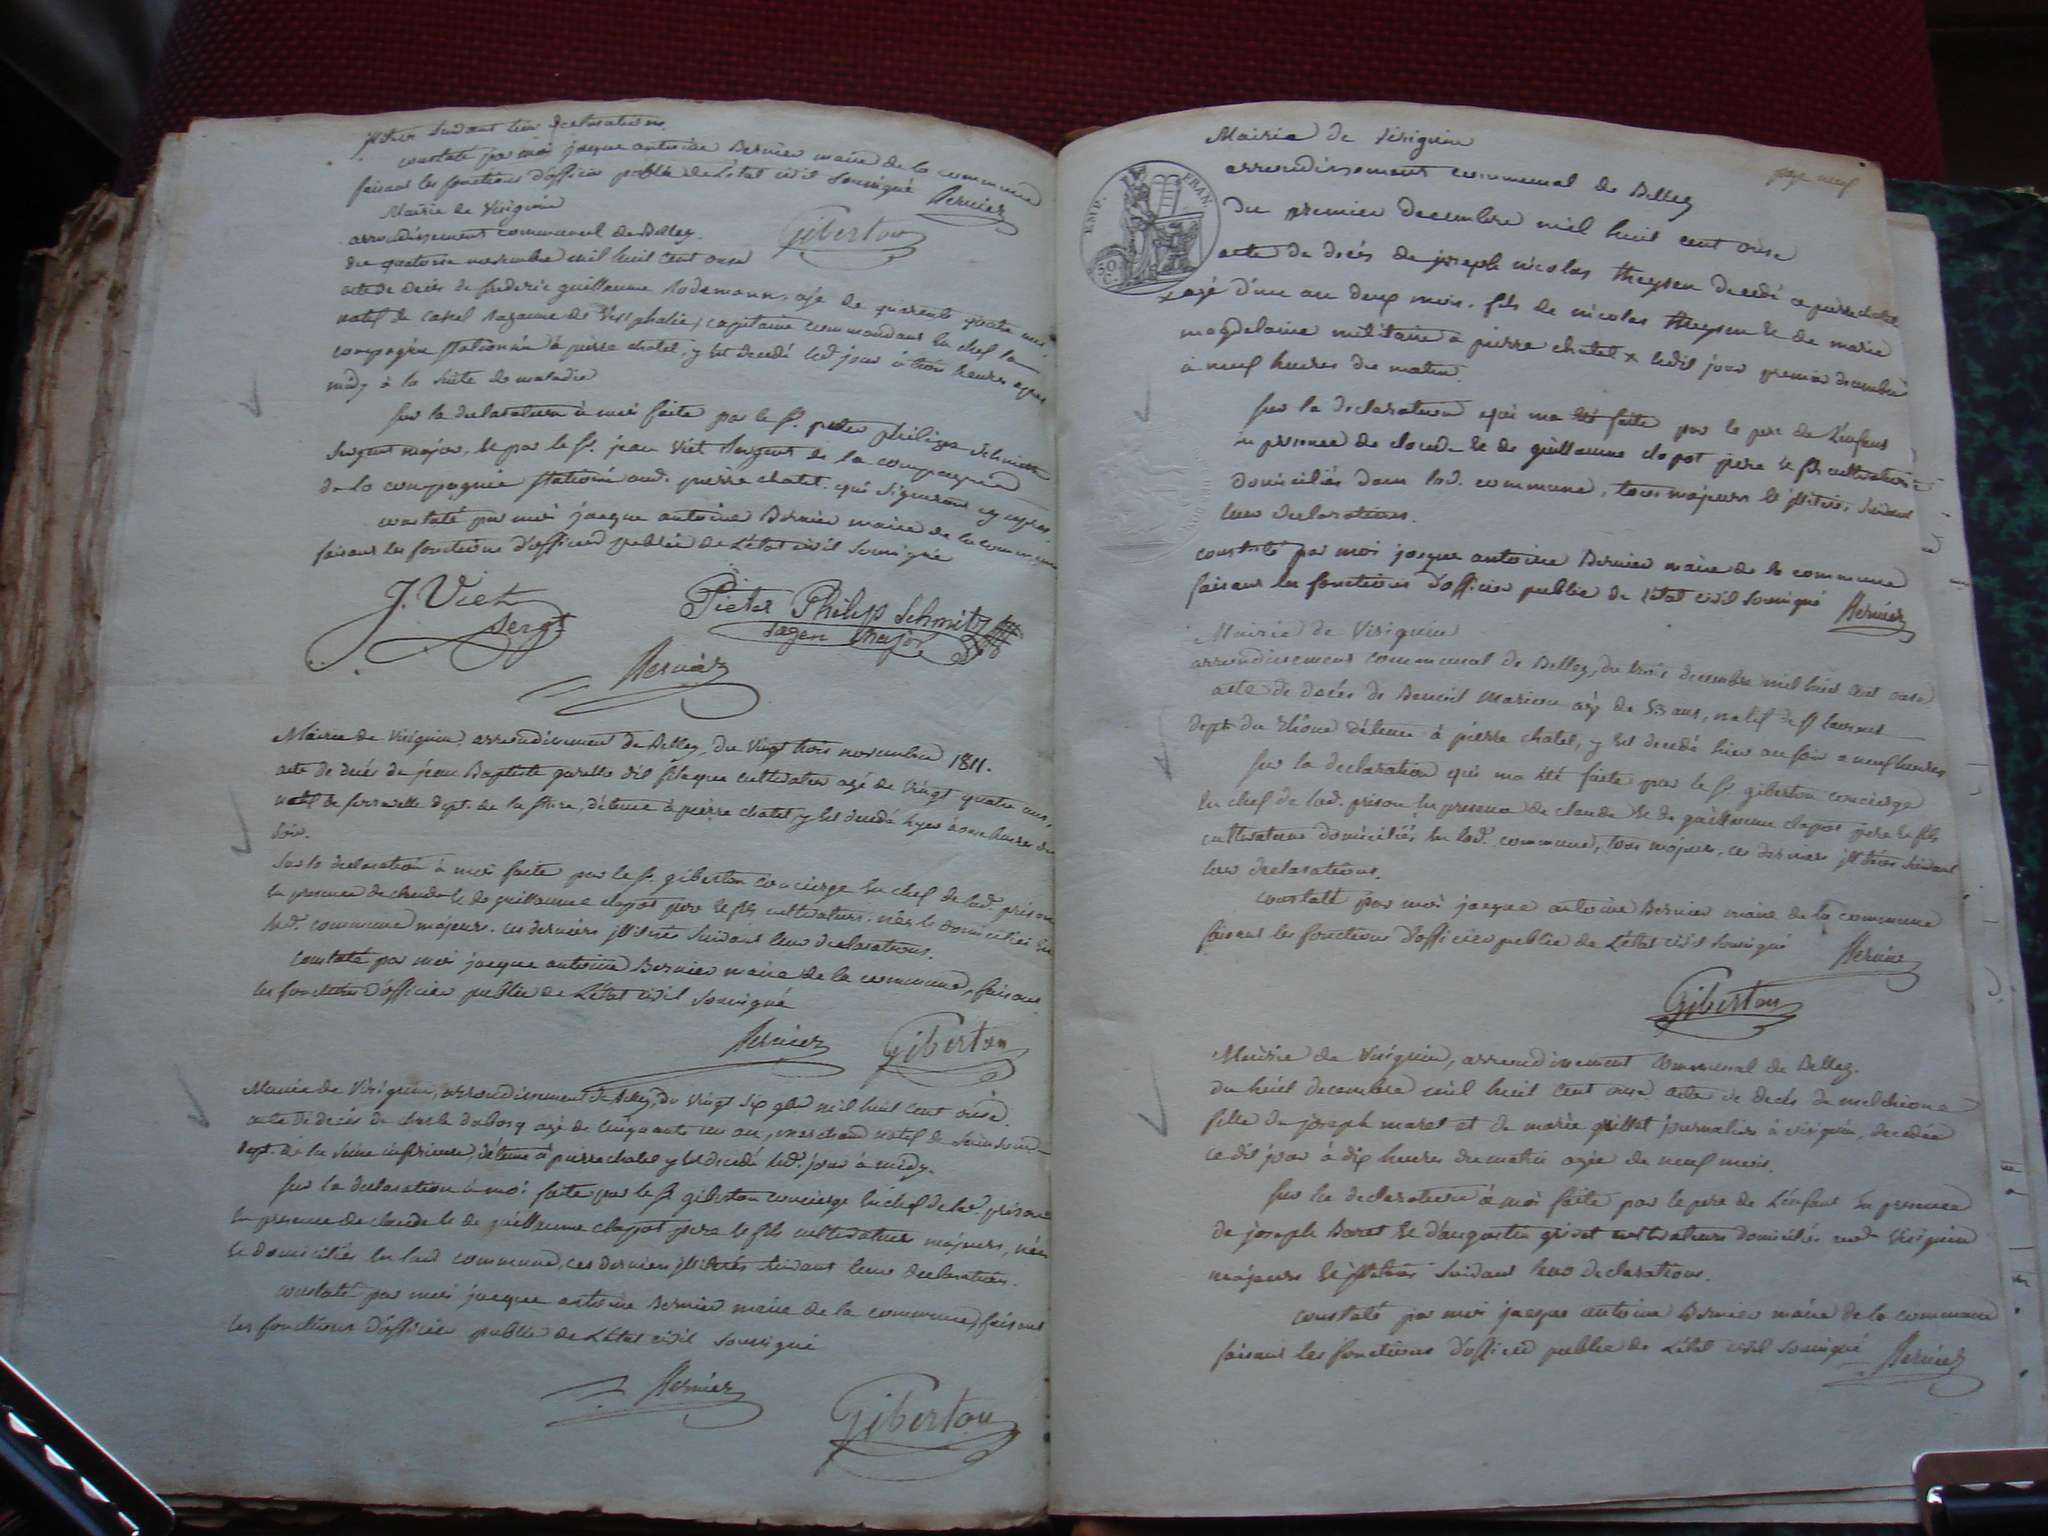 illitérés suivant leur declarations.
constaté par moi jacque antoine Bernier maire de la commune
faisant les fonctions d'officier public de L'état civil soussigné Bernier
Giberton
Mairie de Virignin
arrondissement communal de Belley.
du quatorze novembre mil huit cent onze
acte de decés de frederic guillaume Rodemann, agé de quarente quatre ans,
natif de Cassel Royaume de Vestphalie, capitaine commandant en chef la
compagnie stationnée à pierre chatel, y est decedé led. jour à trois heures apres
midy à la suite de maladie
sur la declaration à moi faite par le Sr. pieter philipp Schmitz
sergent major, et par le Sr. jean Viet sergent de la compagnie
de la compagnie stationné aud. pierre chatel. qui signeront cy apres.
constaté par moi jacque antoine Bernier maire de la commune
faisant les fonctions d'officier public de L'état civil soussigné
J. Viet
sergt
Pieter Philip Schmitz
sagen Major
Bernier
Mairie de Virignin, arrondissement de Belley, du vingt trois novembre 1811.
acte de decés de jean Baptiste dit cultivateur agé de vingt quatre ans,
natif de dept. de la détenu à pierre chatel y est decedé hyer à onze heures du
soir.
Sur la declaration à moi faite par le Sr. giberton concierge en chef de lad. prison
en presence de claude et de guillaume clapot pere et fils cultivateurs. nés et domiciliés en
lad. commune majeurs. ces derniers illitérés suivant leur declarations.
Constaté par moi jacque antoine Bernier maire de la commune, faisant
les fonctions d'officier public de L'état civil soussigné
Bernier Giberton
Mairie de Virignin, arrondissement de Belley, du vingt six 9bre mil huit cent onze.
acte de decés de charle dubosq agé de cinquante un an, marchand natif de
dept. de la Seine inferieure, détenu à pierre chatel y est decedé led. jour à midy.
sur la declaration à moi faite par le Sr. giberton concierge en chef de lad. prison
en presence de claude et de guillaume clapot pere et fils cultivateurs majeurs, nés
et domiciliés en lad. commune, ces derniers illitérés suivant leur declaration.
constaté par moi jacque antoine Bernier maire de la commune, faisant
les fonctions d'officier public de L'état civil soussigné
Bernier
Giberton
page neuf
EMP. FRAN.
50 C.
Mairie de Virignin
arrondissement communal de Belley
du premier decembre mil huit cent onze
acte de decés de joseph nicolas theysen decedé a pierre chatel
x agé d'un an deux mois. fils de nicolas theysen et de marie
magdelaine militaire a pierre chatel x ledit jour premier decembre
a neuf heures du matin.
sur la declaration qui ma été faite par le pere de L'enfant
en presence de claude et de guillaume clapot pere et fils cultivateurs
domiciliés dans lad. commune, tous majeurs et illitérés suivant
leur declarations.
constaté par moi jacque antoine Bernier maire de la commune
faisant les fonctions d'officier public de l'état civil soussigné Bernier
Mairie de Virignin
arrondissement communal de Belley, du trois decembre mil huit cent onze
acte de decés de Benoit Marion agé de 53 ans, natif de St laurent
dept. du Rhône détenu à pierre chatel, y est decedé hier au soir a neuf heures
Sur la declaration qui ma été faite par le Sr. giberton concierge
en chef de lad. prison en presence de claude et de guillaume clapot pere et fils
cultivateurs domiciliés en lad. commune, tous majeurs, ces derniers illitérés suivant
leur declarations.
constaté par moi jacque antoine Bernier maire de la commune
faisant les fonctions d'officier public de L'état civil soussigné Bernier
Giberton
Mairie de Virignin, arrondissement communal de Belley.
du huit decembre mil huit cent onze acte de decés de melchione
fille de joseph maret et de marie grillet journaliers à virignin, decedée
ce dit jour à dix heures du matin agée de neuf mois.
Sur la declaration à moi faite par le pere de L'enfant en presence
de joseph Baret et d'augustin cultivateurs domiciliés aud. Virignin
majeurs et illitérés suivant leur declarations.
constaté par moi jacque antoine Bernier maire de la commune
faisant les fonctions d'officier public de L'état civil soussigné Bernier